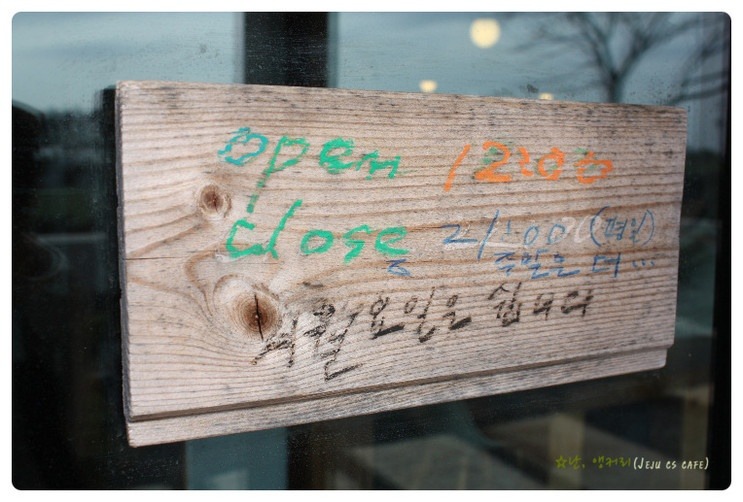 open 12:00
close 21:00 (평일)
주말은 더...
월요일은 쉽니다
☆난, 앵커리(JEJU CS CAFE)